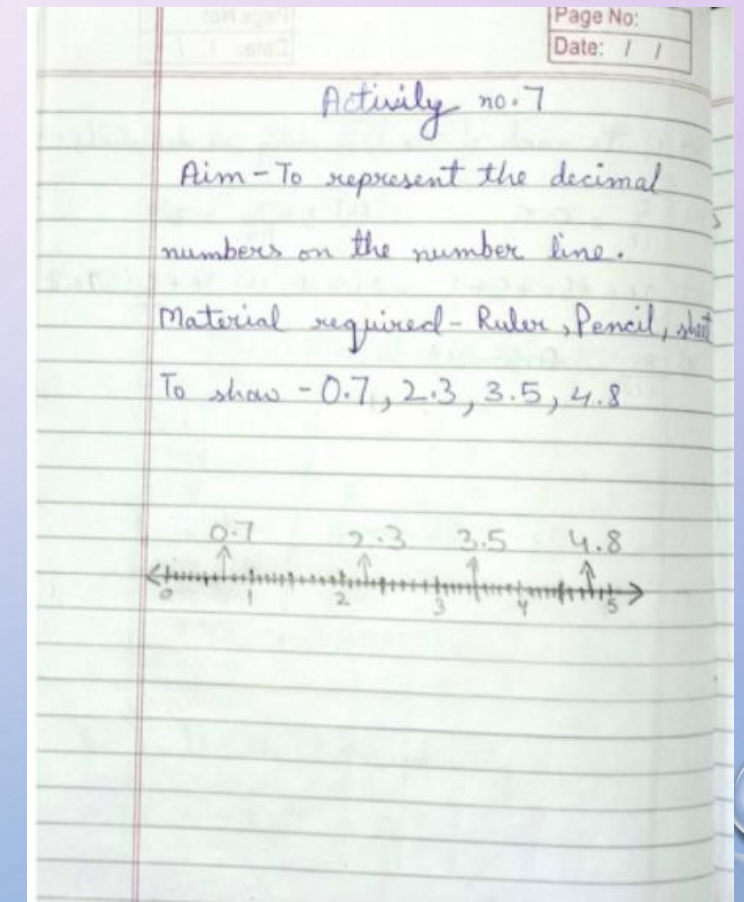 Page No:
Date: / /
Activity no.7
Aim-To represent the decimal
numbers on the number line.
Material required-Ruler, Pencil, sheet
To show - 0.7, 2.3, 3.5, 4.8
0.7 2.3 3.5 4.8
0 1 2 3 4 5